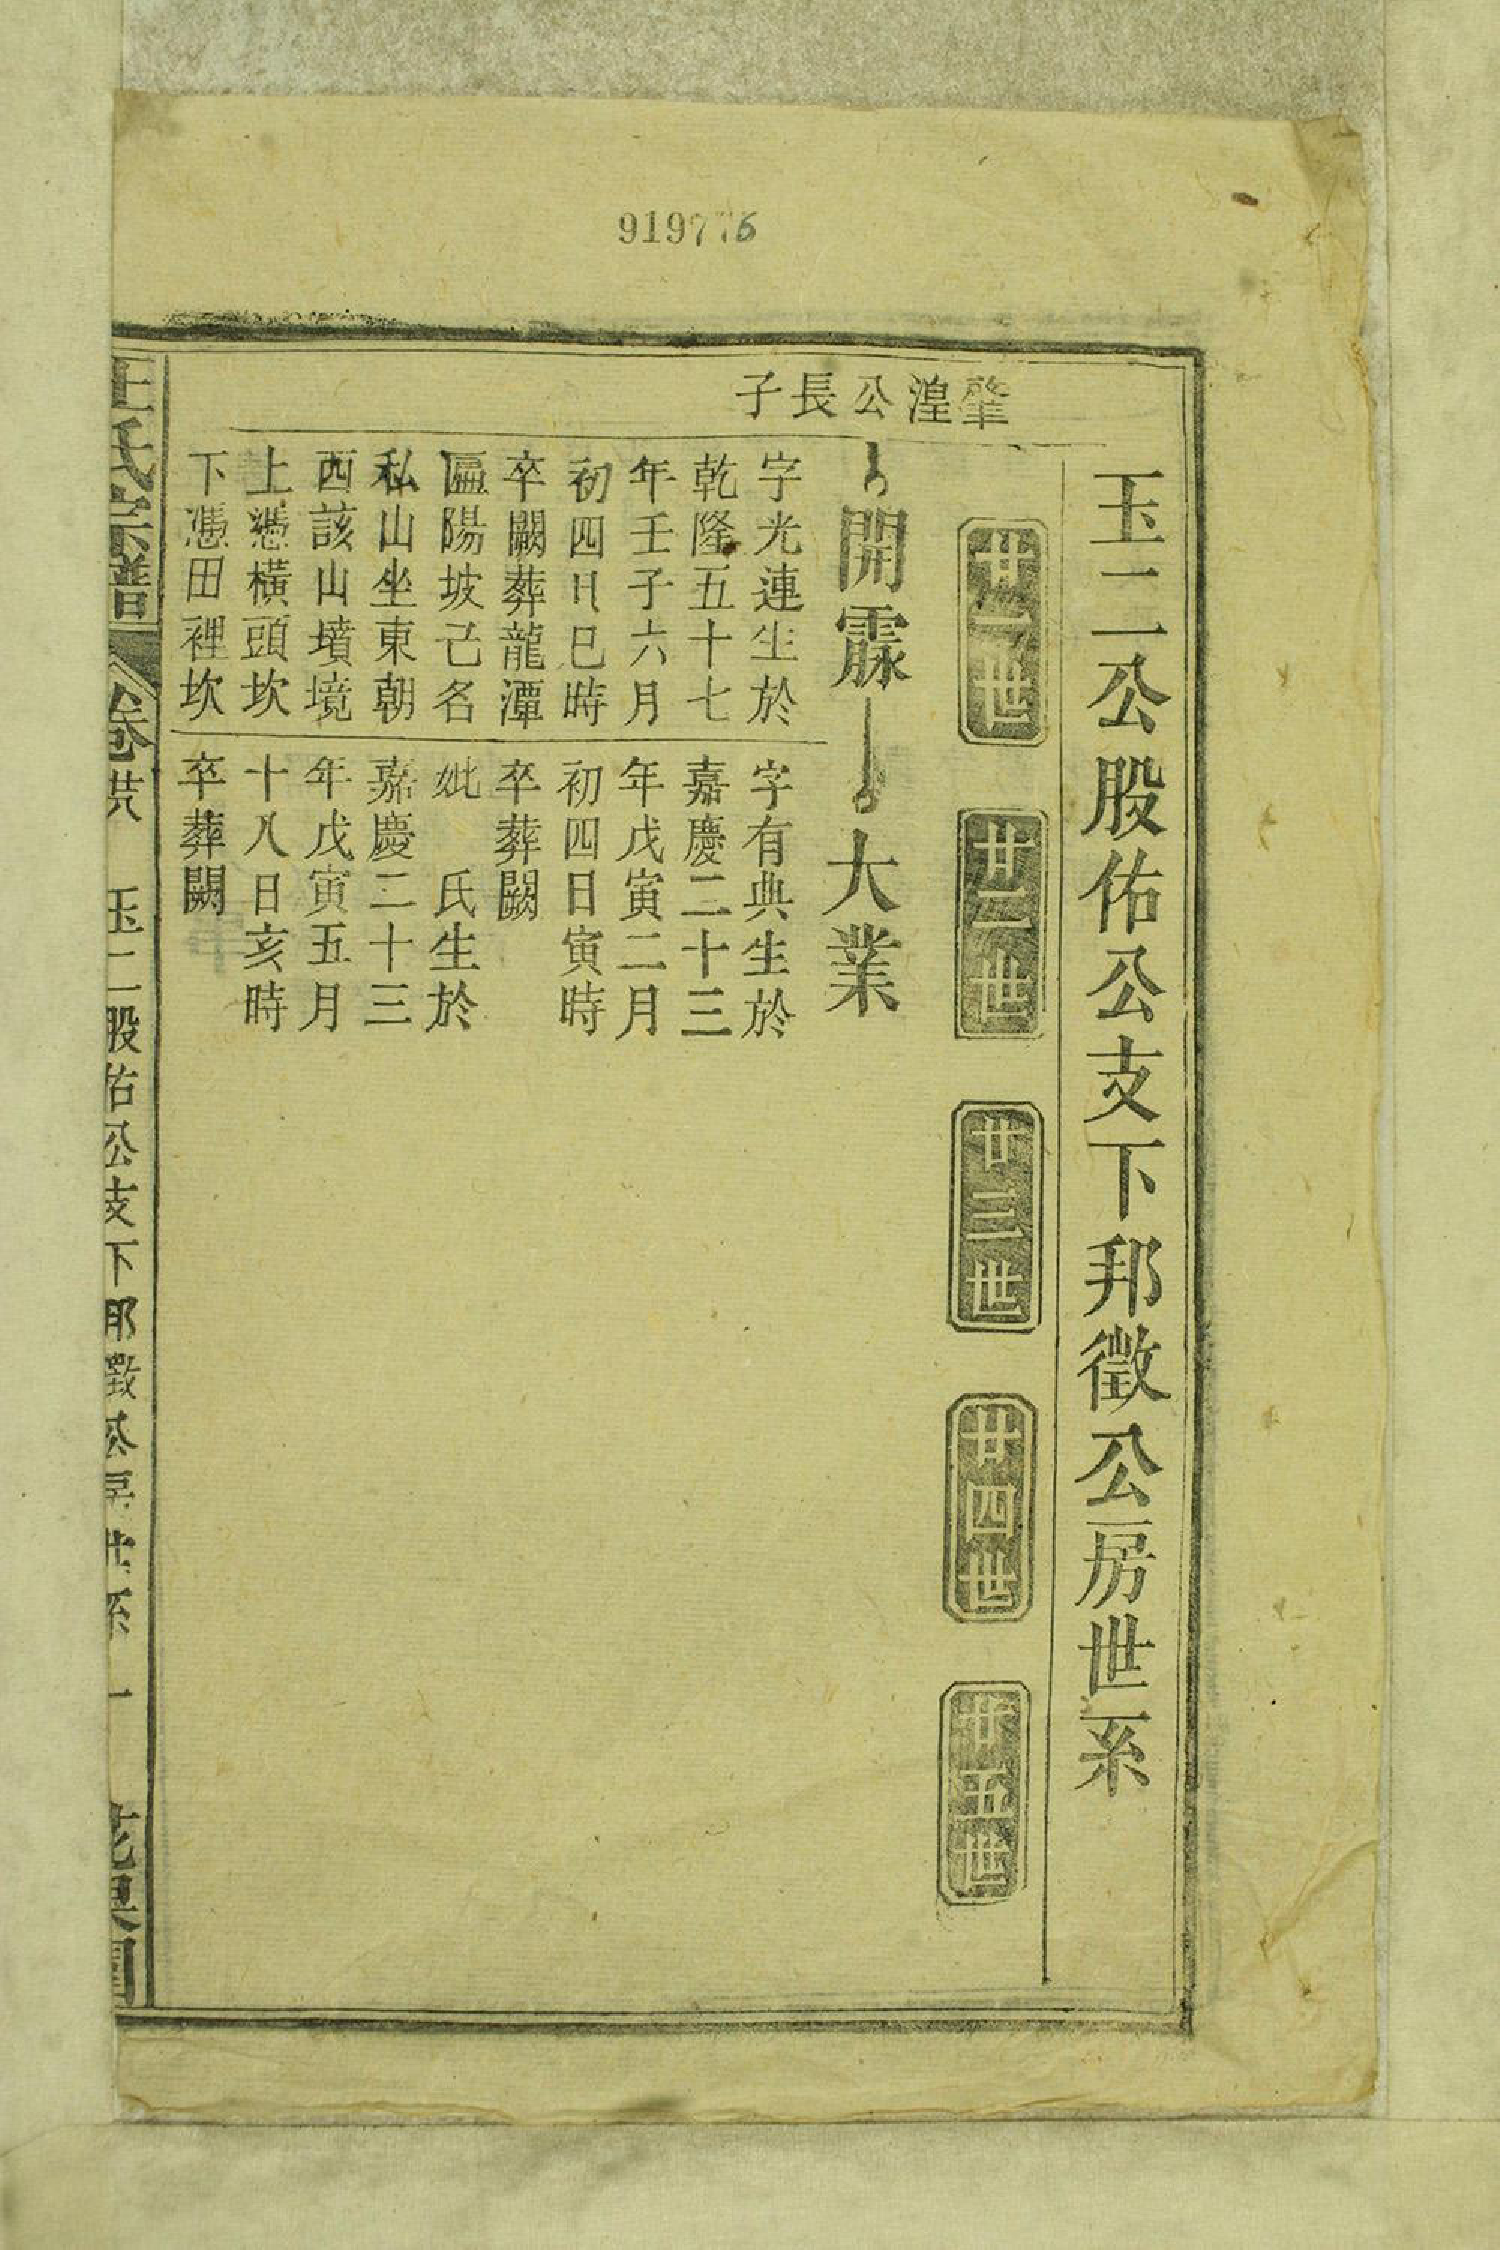 919776
玉二公股佑公支下邦徵公房世系
廿一世
廿二世
廿三世
廿四世
廿五世
肇湟公長子
開霢
大業
字光連生於
乾隆五十七
年壬子六月
初四日巳時
卒闕葬龍潭
匾陽坡己名
私山坐東朝
西該山墳境
上憑橫頭坎
下憑田裡坎
字有典生於
嘉慶二十三
年戊寅二月
初四日寅時
卒葬闕
妣 氏生於
嘉慶二十三
年戊寅五月
十八日亥時
卒葬闕
王氏宗譜
卷 玉二股佑公支下邦徵公房世系 一